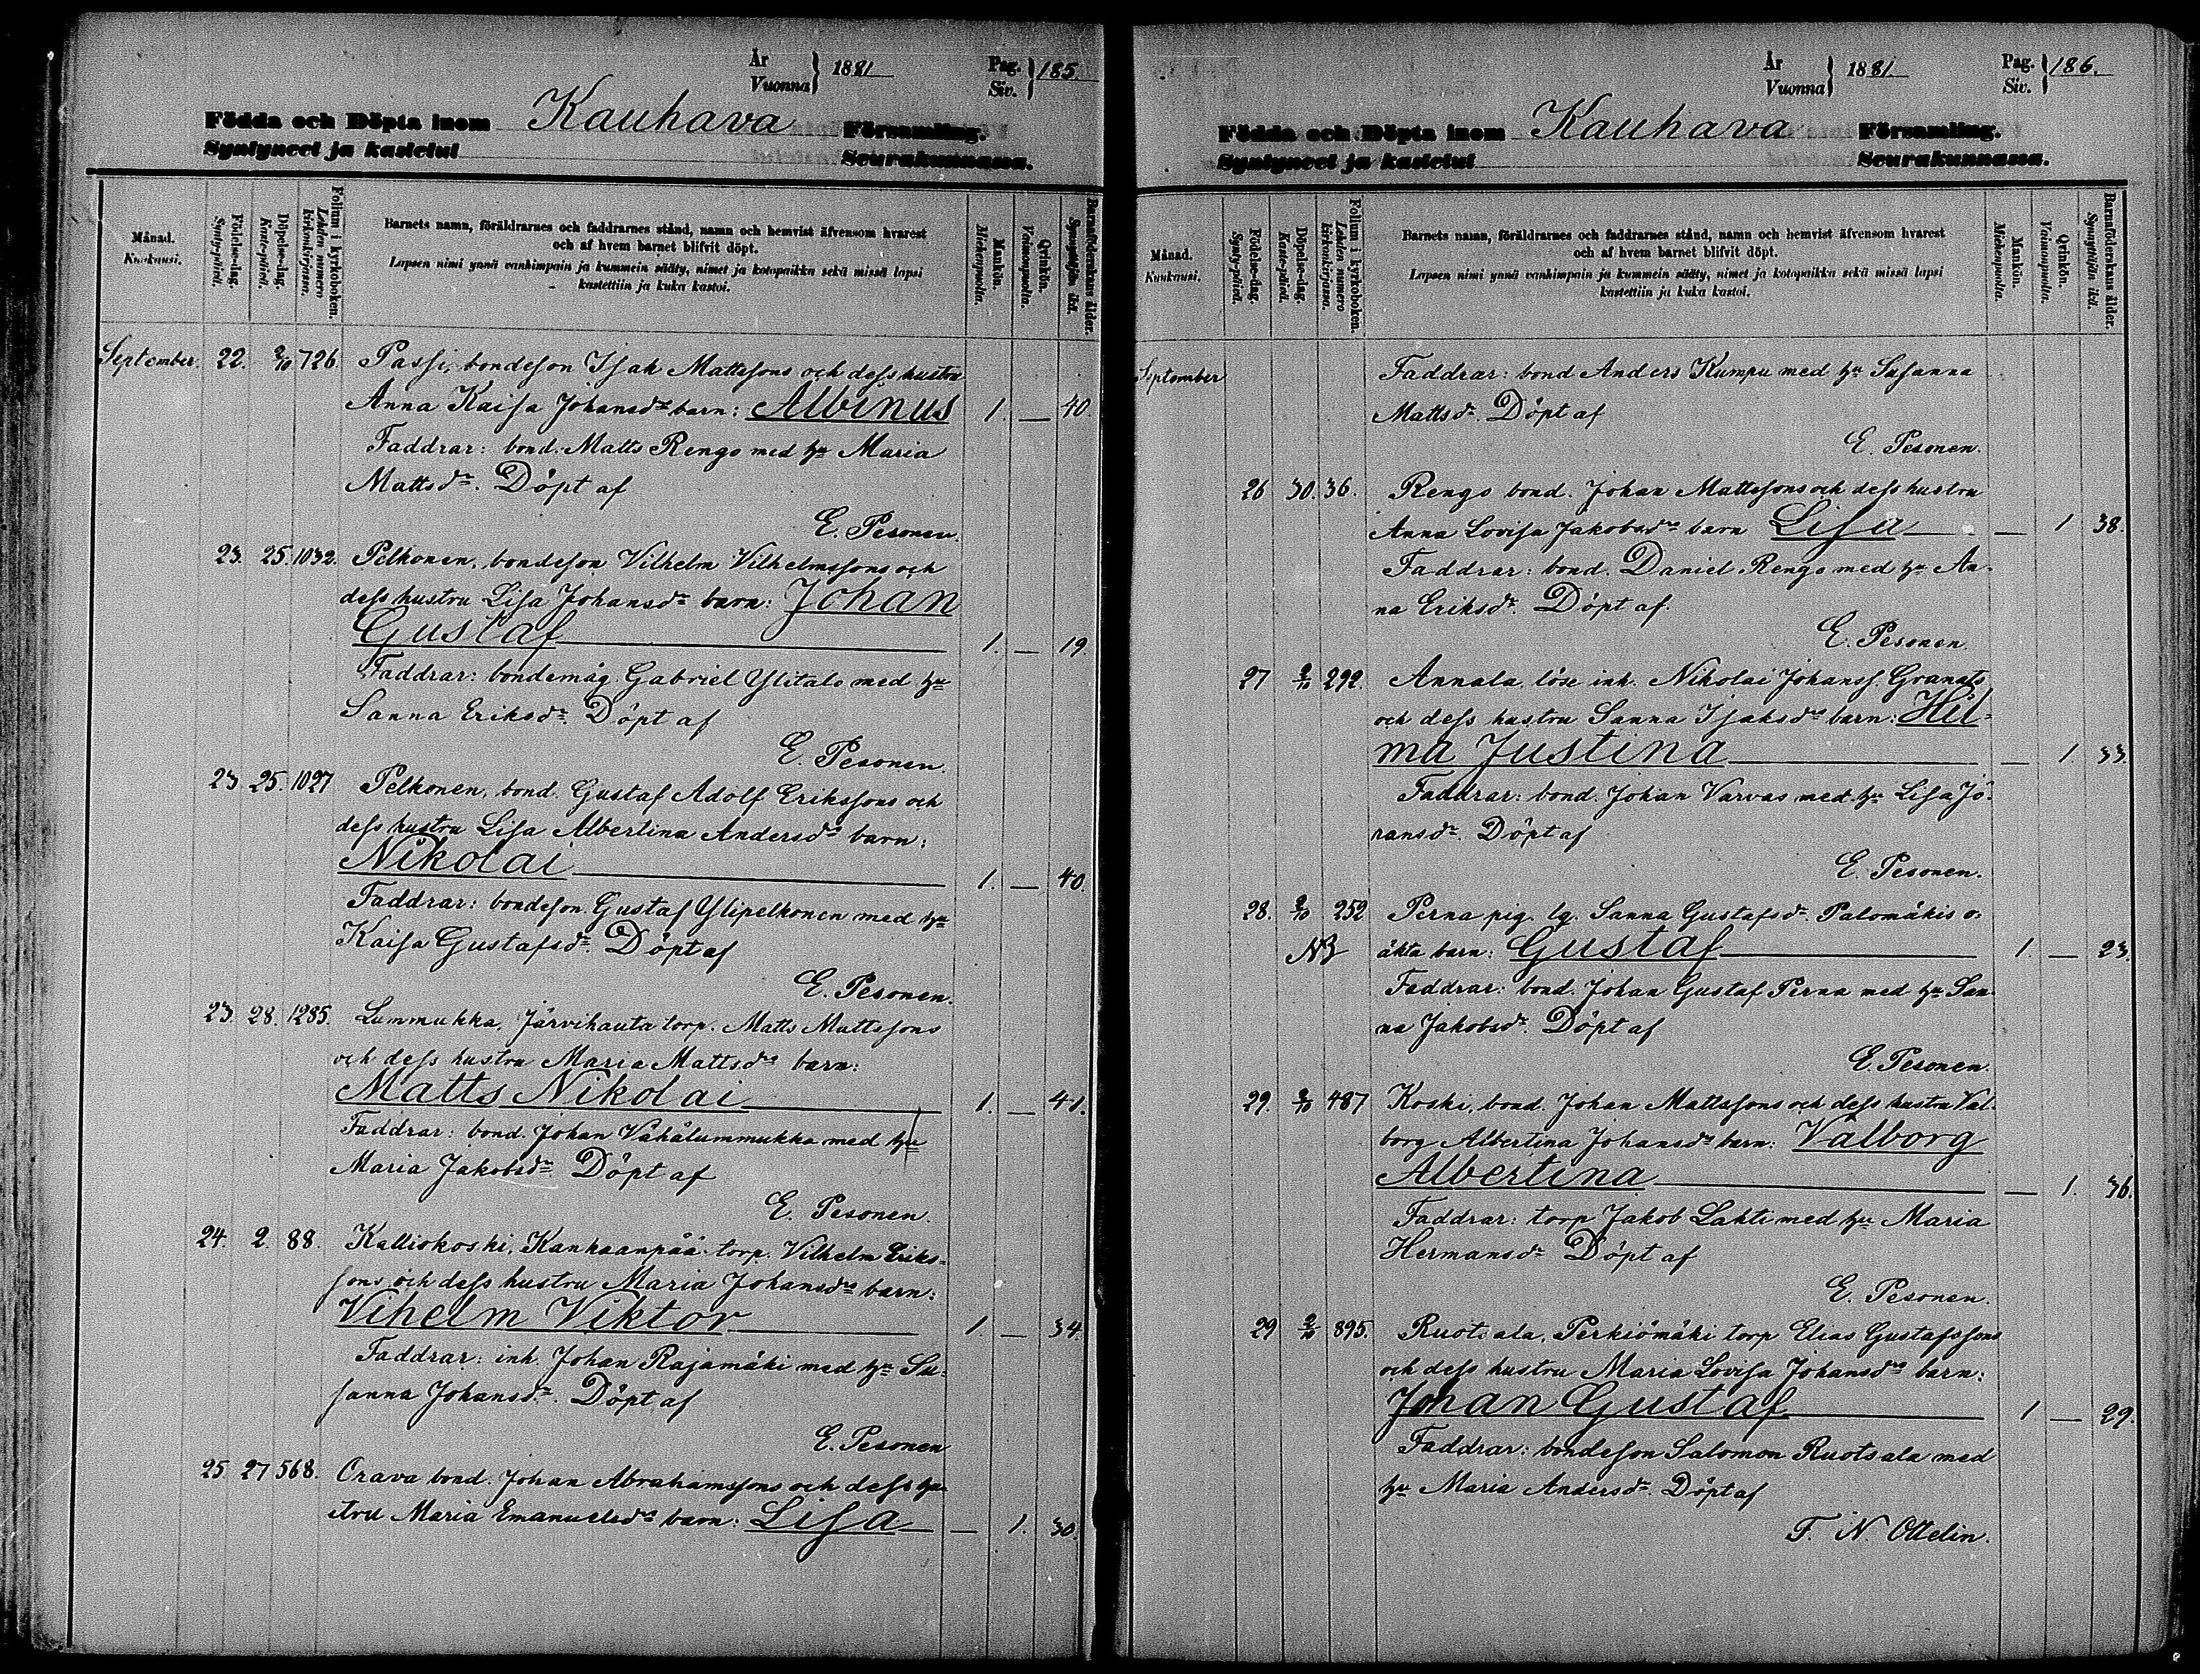 År
Vuonna } 1881
Pag.
Siv. } 185.
Födda och Döpta inom Kauhava Församling.
Syntyneet ja kastetut Seurakunnassa.
Månad.
Kuukausi.
Födelse-dag.
Synty-päivä.
Döpelse-dag.
Kaste-päivä.
Folium i kyrkoboken.
Lehden numero kirkonkirjassa.
Barnets namn, föräldrarnes och faddrarnes stånd, namn och hemvist äfvensom hvarest
och af hvem barnet blifvit döpt.
Lapsen nimi ynnä vanhimpain ja kummein sääty, nimet ja kotopaikka sekä missä lapsi
kastettiin ja kuka kastoi.
Mankön.
Miehenpuolta.
Qvinkön.
Vaimonpuolta.
Barnaföderskans ålder.
Synnyttäjän ikä.
September. 22. 2/10 726. Passi, bondeson Isak Mattssons och dess hustru
Anna Kaisa Johansdrs barn: Albinus 1. — 40.
Faddrar: bond. Matts Rengo med hu Maria
Mattsdr. Döpt af
E. Pesonen.
23. 25. 1032. Pelkonen, bondeson Vilhelm Vilhelmssons och
dess hustru Lisa Johansdrs barn: Johan
Gustaf 1. — 19.
Faddrar: bondemåg Gabriel Ylitalo med hu
Sanna Eriksdr. Döpt af
E. Pesonen.
23 25. 1027 Pelkonen, bond. Gustaf Adolf Erikssons och
dess hustru Lisa Albertina Andersdrs barn:
Nikolai 1. — 40.
Faddrar: bondeson Gustaf Ylipelkonen med hu
Kaisa Gustafsdr. Döpt af
E. Pesonen.
23 28. 1285. Lummukka, Järvihauta torp. Matts Mattssons
och dess hustru Maria Mattsdrs barn:
Matts Nikolai 1. — 41.
Faddrar: bond. Johan Vähälummukka med hu
Maria Jakobsdr. Döpt af
E. Pesonen.
24. 2. 88. Kalliokoski, Kankaanpää torp. Vilhelm Eriks-
sons och dess hustru Maria Johansdrs barn:
Vihelm Viktor 1. — 34.
Faddrar: inh. Johan Rajamäki med hu Su-
sanna Johansdr. Döpt af
E. Pesonen
25 27 568. Orava bond. Johan Abrahamssons och dess hu-
stru Maria Emanuelsdrs barn: Lisa — 1. 30.
År
Vuonna } 1881
Pag.
Siv. } 186.
Födda och Döpta inom Kauhava Församling.
Syntyneet ja kastetut Seurakunnassa.
Månad.
Kuukausi.
Födelse-dag.
Synty-päivä.
Döpelse-dag.
Kaste-päivä.
Folium i kyrkoboken.
Lehden numero kirkonkirjassa.
Barnets namn, föräldrarnes och faddrarnes stånd, namn och hemvist äfvensom hvarest
och af hvem barnet blifvit döpt.
Lapsen nimi ynnä vanhimpain ja kummein sääty, nimet ja kotopaikka sekä missä lapsi
kastettiin ja kuka kastoi.
Mankön.
Miehenpuolta.
Qvinkön.
Vaimonpuolta.
Barnaföderskans ålder.
Synnyttäjän ikä.
September Faddrar: bond Anders Kumpu med hu Susanna
Mattsdr. Döpt af
E. Pesonen.
26 30. 36. Rengo bond. Johan Mattssons och dess hustru
Anna Lovisa Jakobsdrs barn Lisa — 1 38.
Faddrar: bond. Daniel Rengo med hu An-
na Eriksdr. Döpt af.
E. Pesonen.
27 2/10 292. Annala, löse inh. Nikolai Johanss. Granats
och dess hustru Sanna Isaksdrs barn: Hil-
ma Justina — 1. 33.
Faddrar: bond. Johan Varvas med hu Lisa Jö-
ransdr. Döpt af
E. Pesonen.
28. 2/10 252 Perna pig. lg. Sanna Gustafsdr. Palomäkis o-
NB äkta barn: Gustaf 1. — 23.
Faddrar: bond. Johan Gustaf Perna med hu San-
na Jakobsdr. Döpt af
E. Pesonen.
29. 2/10 487 Koski, bond. Johan Mattssons och dess hustru Val-
borg Albertina Johansdrs barn: Valborg
Albertina — 1. 36.
Faddrar: torp Jakob Lahti med hu Maria
Hermansdr Döpt af
E. Pesonen.
29 2/10 895. Ruotsala, Perkiömäki torp Elias Gustafssons
och dess hustru Maria Lovisa Johansdrs barn:
Johan Gustaf 1 — 29.
Faddrar: bondeson Salomon Ruotsala med
hu Maria Andersdr. Döpt af
F. N. Ottelin.